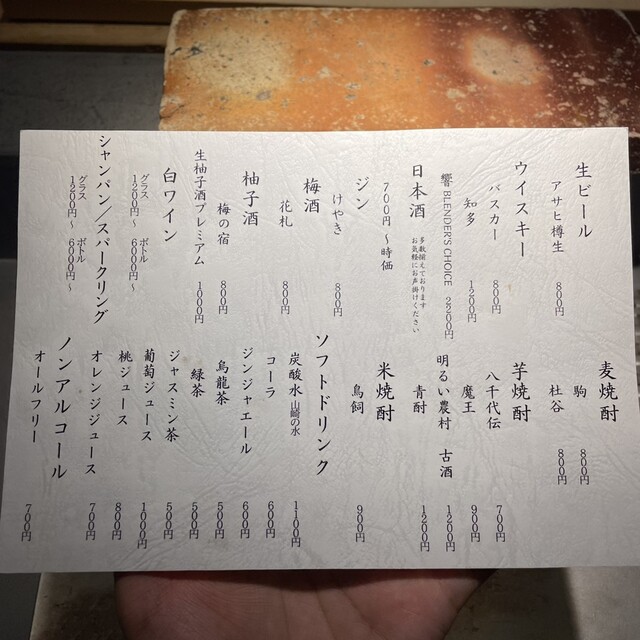 生ビール
アサヒ樽生
ウイスキー
バスカー 800円
知多 1200円
響 BLENDER'S CHOICE 2200円
日本酒 多数揃えております
お気軽にお声掛けください
700円～時価
ジン
けやき 800円
梅酒
花札 800円
柚子酒
梅の宿 800円
生柚子酒プレミアム 1000円
白ワイン
グラス ボトル
1200円～ 6000円～
シャンパン／スパークリング
グラス ボトル
1200円～ 6000円～
麦焼酎
駒 800円
杜谷 800円
芋焼酎
八千代伝 700円
魔王 900円
明るい農村 古酒 1200円
青酎 1200円
米焼酎
鳥飼 900円
ソフトドリンク
炭酸水 山崎の水 1100円
コーラ 600円
ジンジャエール 600円
烏龍茶 500円
緑茶 500円
ジャスミン茶 500円
葡萄ジュース 1000円
桃ジュース 800円
オレンジジュース 700円
ノンアルコール
オールフリー 700円